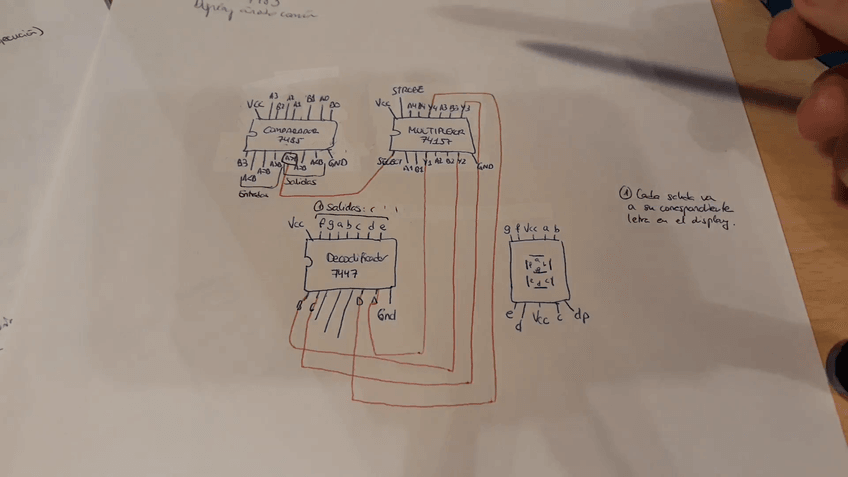 ecución)
Display ánodo común
VCC A3 B2 A2 A1 B1 A0 B0
COMPARADOR
7485
B3 A<B A=B A>B A>B A=B A<B GND
Entradas
Salidas
STROBE
VCC A4 B4 Y4 A3 B3 Y3
MULTIPLEXER
74157
SELECT A1 B1 Y1 A2 B2 Y2 GND
① Salidas:
Vcc f g a b c d e
Decodificador
7447
B C D A Gnd
g f Vcc a b
e d Vcc c dp
① Cada salida va
a su correspondiente
letra en el display.